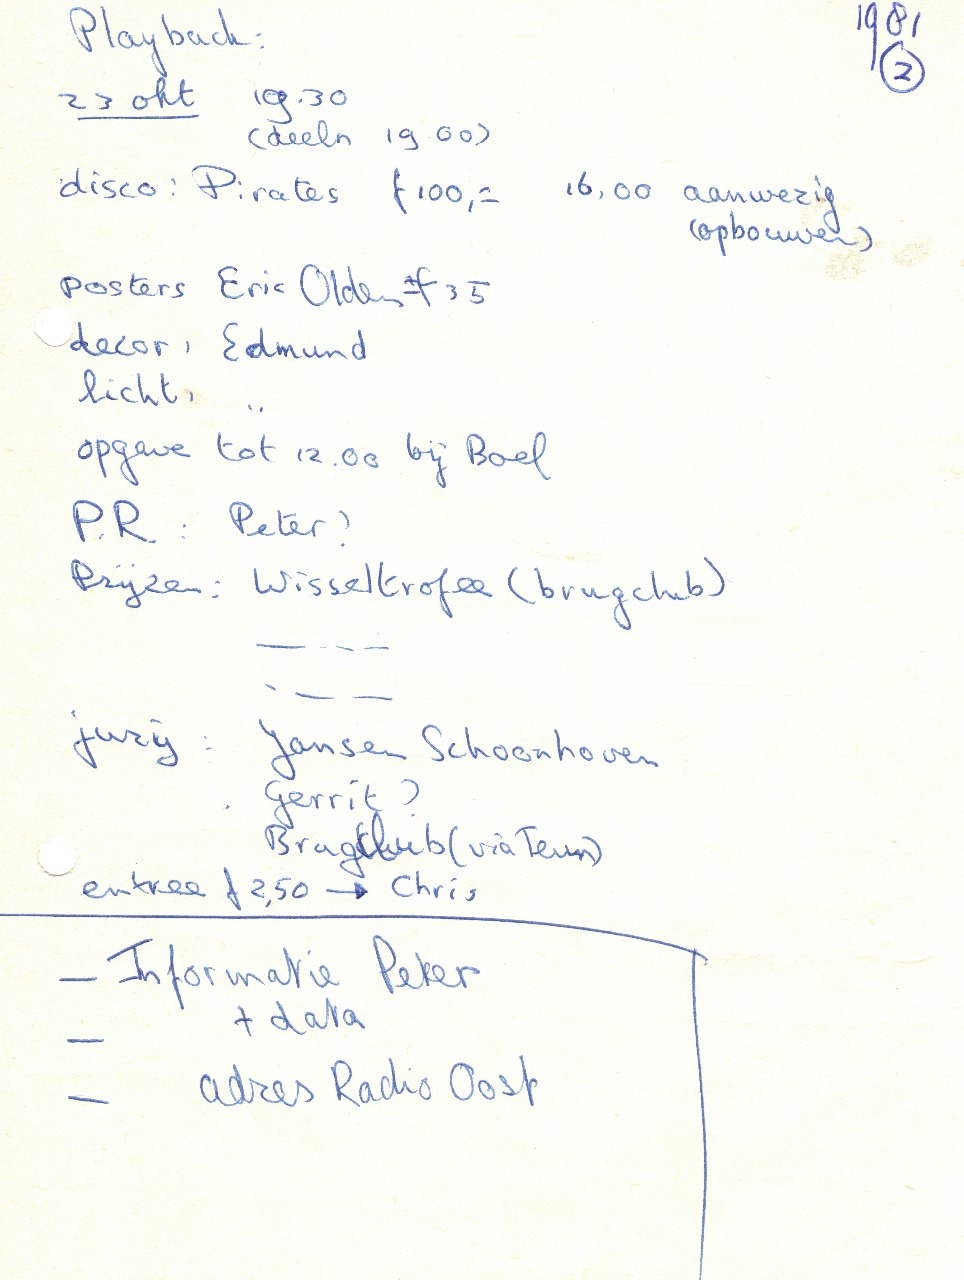 1981
2
Playback:
23 okt 19.30
(deeln 19.00)
disco: Pirates f 100,= 16,00 aanwezig
(opbouwen)
posters Eric Olden ± f 35
decor, Edmund
licht, "
opgave tot 12.00 bij Boel
P.R. : Peter?
Prijzen: Wisseltrofee (brugclub)
— - - —
- — —
jurij : Jansen Schoonhoven
Gerrit ?
Brugclub (via Teun)
entree f 2,50 → Chris
— Informatie Peter
— + data
— adres Radio Oost